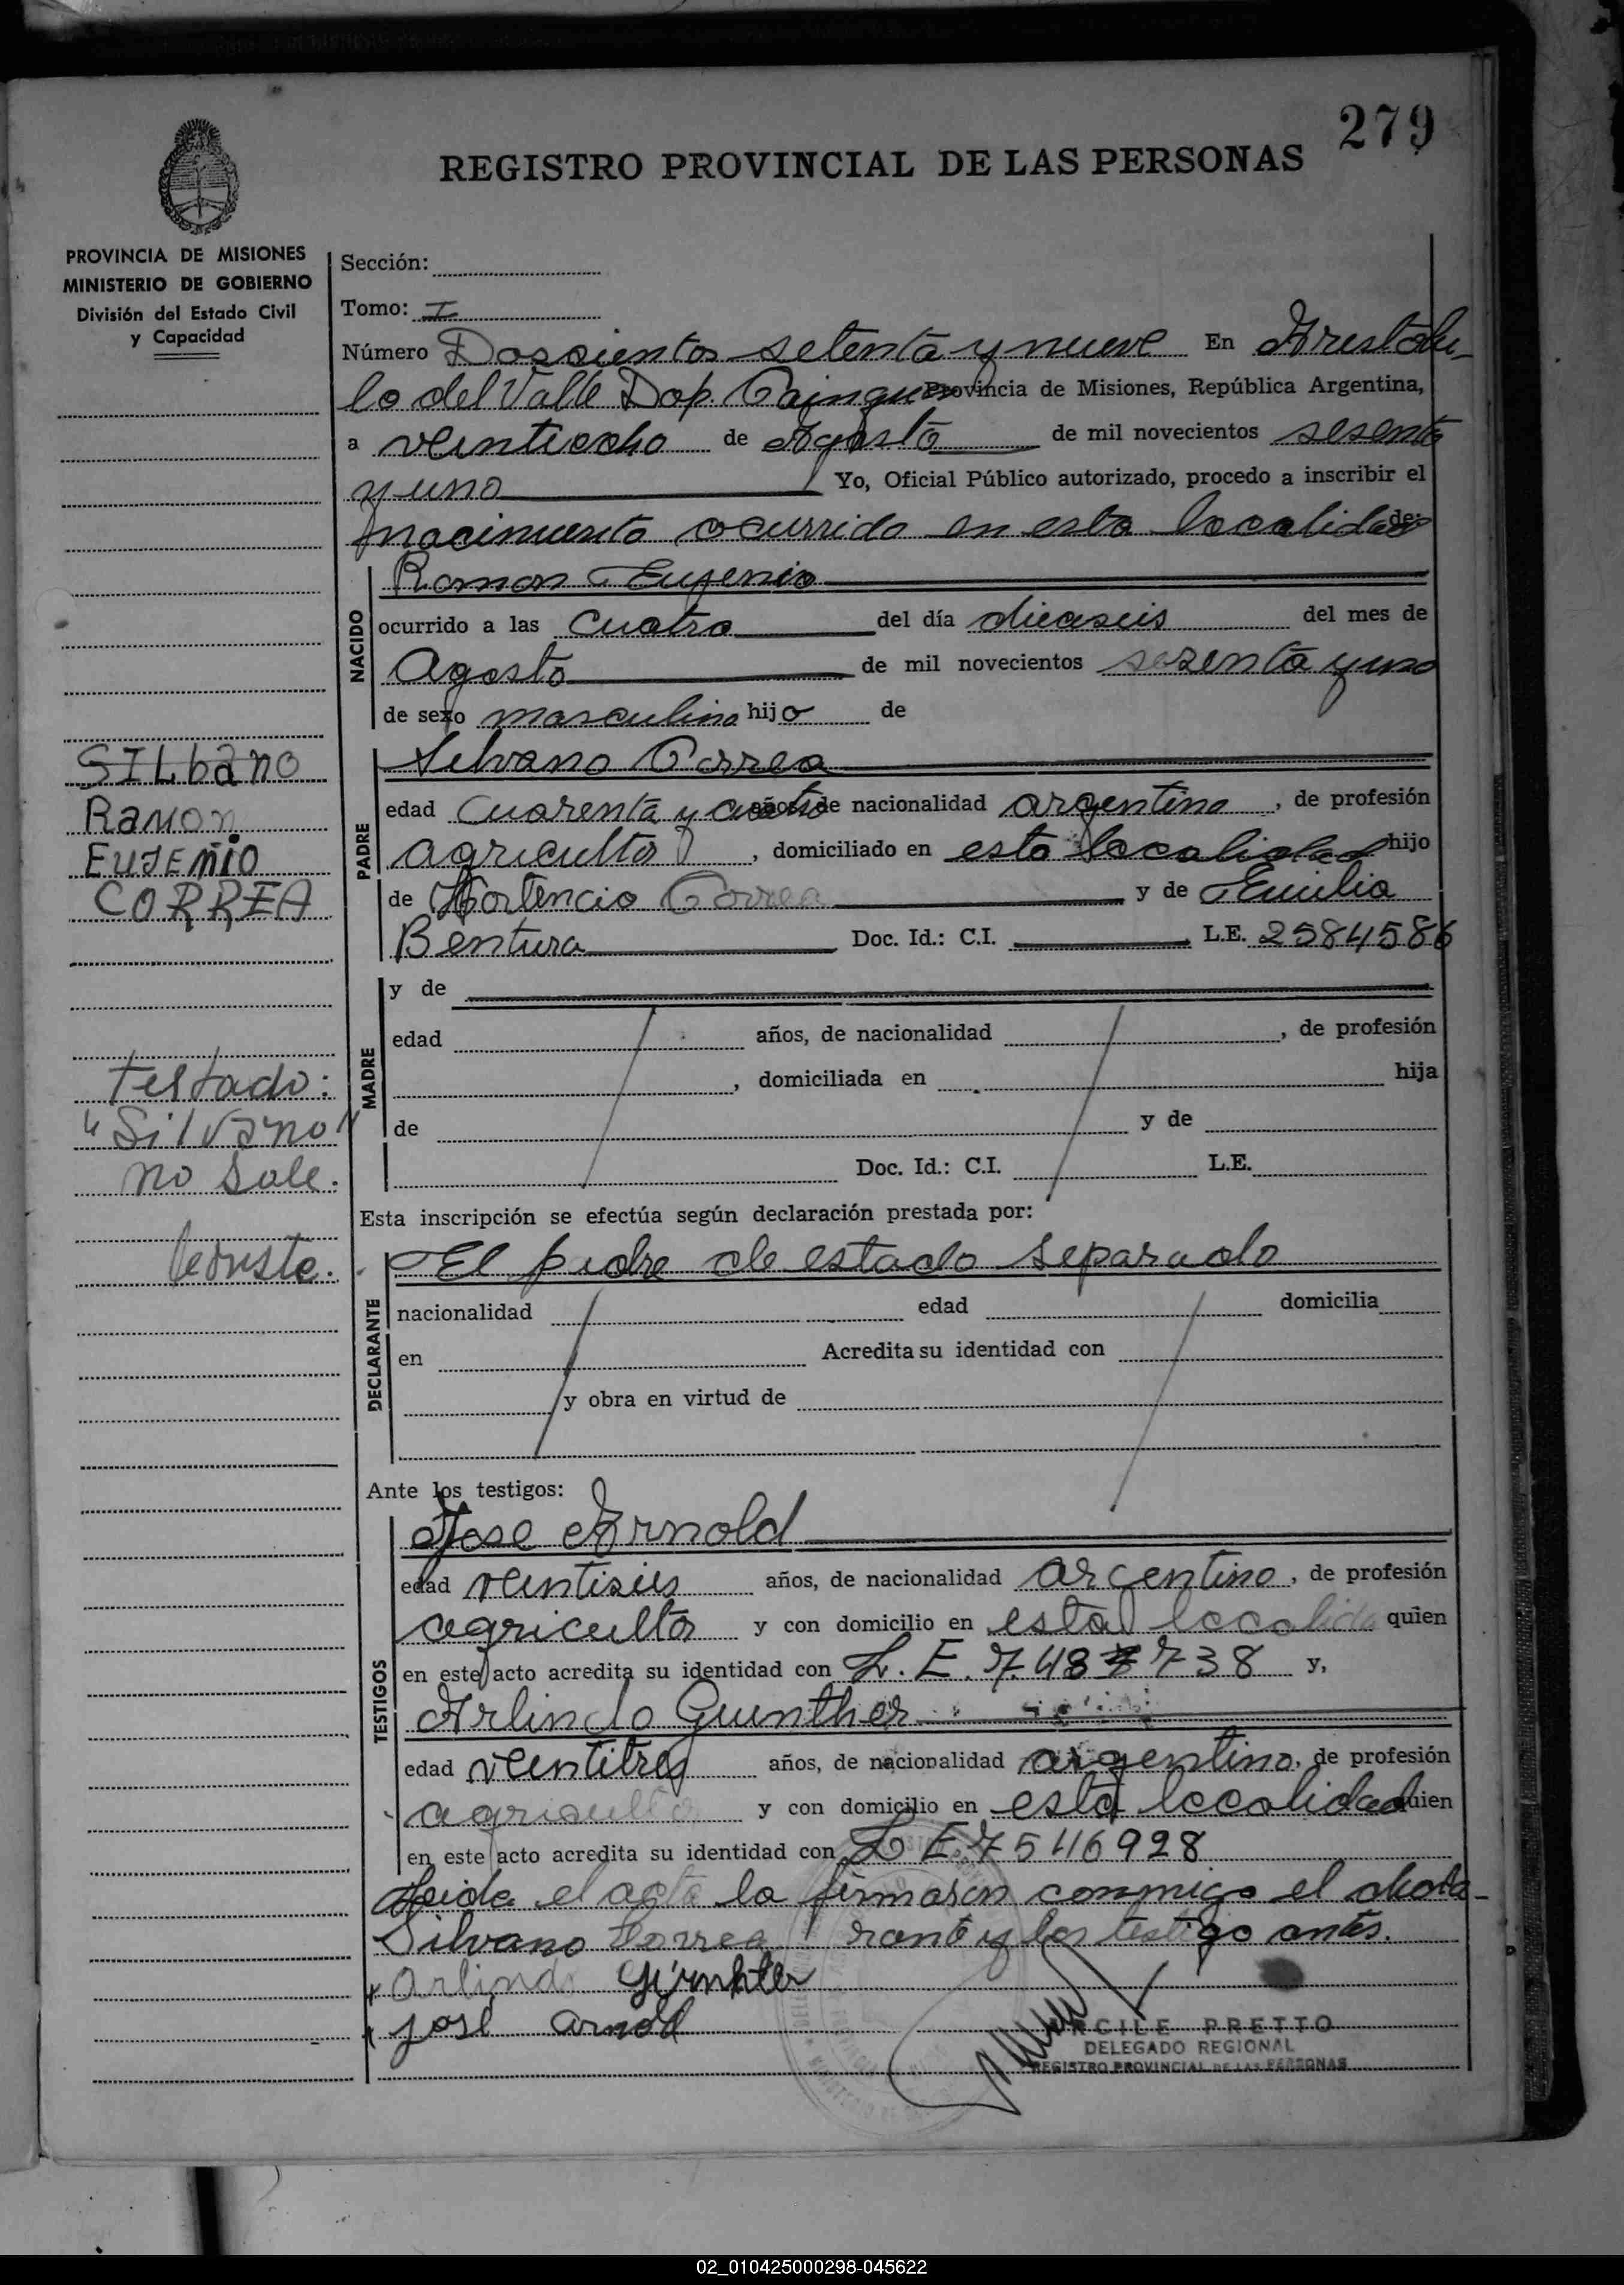 279
REGISTRO PROVINCIAL DE LAS PERSONAS
PROVINCIA DE MISIONES
MINISTERIO DE GOBIERNO
División del Estado Civil
y Capacidad
Sección:
Tomo: I
Número Doscientos setenta y nueve En Aristobu-
lo del Valle Dop. Cainguas Provincia de Misiones, República Argentina,
a veintiocho de Agosto de mil novecientos sesenta
y uno Yo, Oficial Público autorizado, procedo a inscribir el
nacimiento ocurrido en esta localidad de:
NACIDO
Ramon Eugenio
ocurrido a las cuatro del día dieaseis del mes de
Agosto de mil novecientos sesenta y uno
de sexo masculino hijo de
SILbano
Ramon
EUJENIO
CORREA
PADRE
Silvano Correa
edad cuarenta y cuatro años, de nacionalidad argentino, de profesión
agricultor, domiciliado en esta localidad hijo
de Hortencio Correa y de Emilia
Bentura Doc. Id.: C.I. L.E. 2584586
MADRE
y de
edad años, de nacionalidad , de profesión
, domiciliada en hija
de y de
Doc. Id.: C.I. L.E.
testado:
"Silvano"
no Sale.
Conste.
Esta inscripción se efectúa según declaración prestada por:
DECLARANTE
El padre de estado separado
nacionalidad edad domicilia
en Acredita su identidad con
y obra en virtud de
Ante los testigos:
TESTIGOS
Jose Arnold
edad ventiseis años, de nacionalidad argentino, de profesión
agricultor y con domicilio en esta localida quien
en este acto acredita su identidad con L.E. 7.487738 y,
Arlindo Gunther
edad veintitres años, de nacionalidad argentino, de profesión
agricultor y con domicilio en esta localidad quien
en este acto acredita su identidad con L E. 7546928
Leida el acta la firmaron conmigo el decla-
Silvano Correa rante y los testigo antes.
x Arlindo Günhter
x josé arnold
PRETTO
DELEGADO REGIONAL
REGISTRO PROVINCIAL DE LAS PERSONAS
02_010425000298-045622